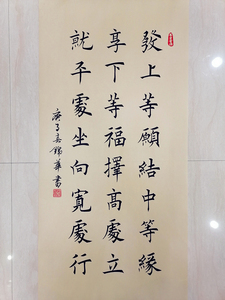 發上等願結中等緣
享下等福擇高處立
就平處坐向寬處行
庚子吾錦華書